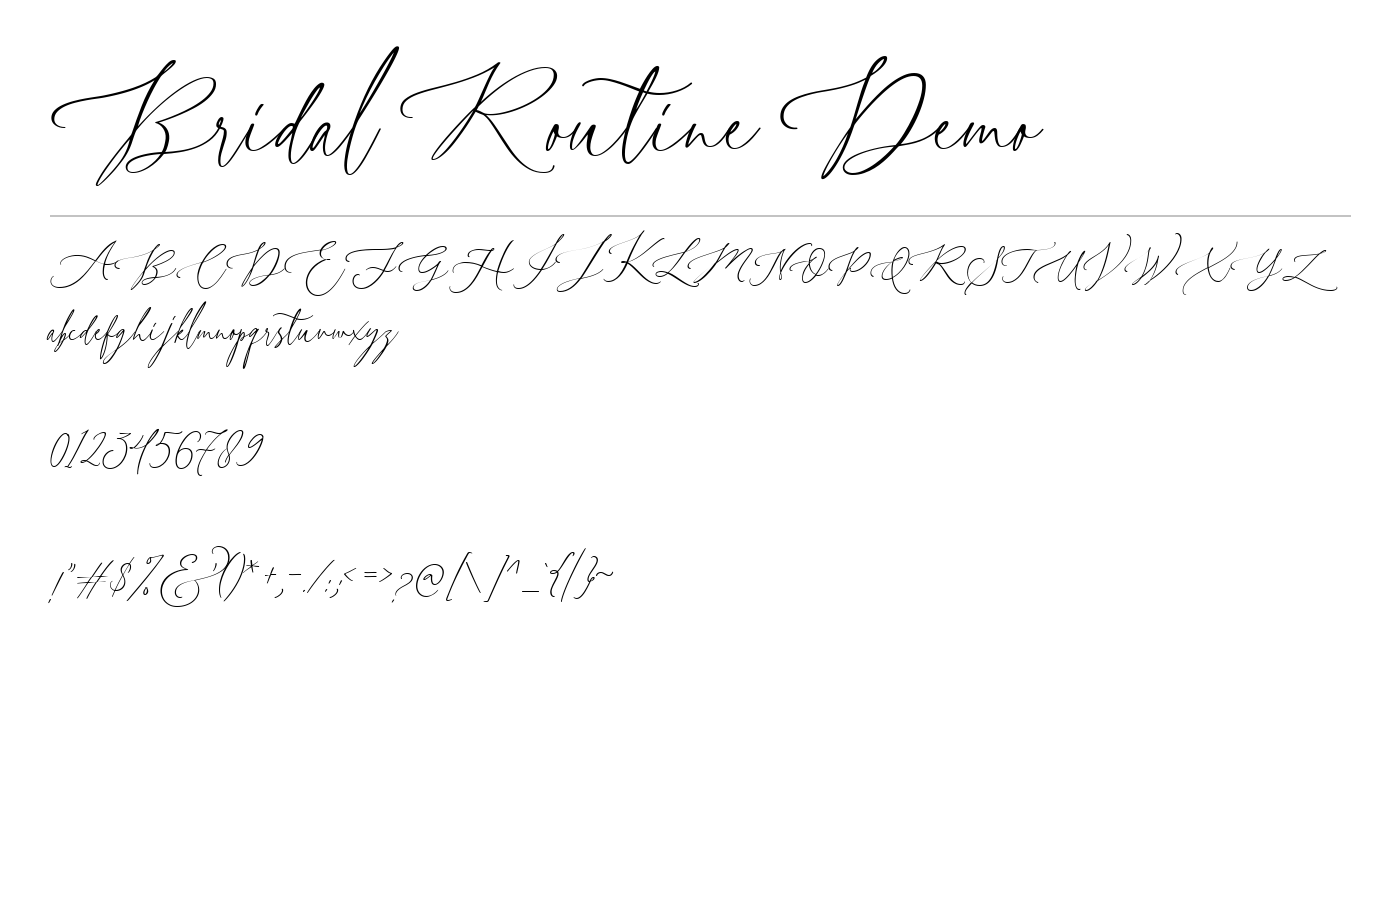 Bridal Routine Demo
ABCDEFGHIJKLMNOPQRSTUVWXYZ
abcdefghijklmnopqrstuvwxyz
0123456789
!"#$%&'()*+,-./:;<=>?@[\]^_`{|}~